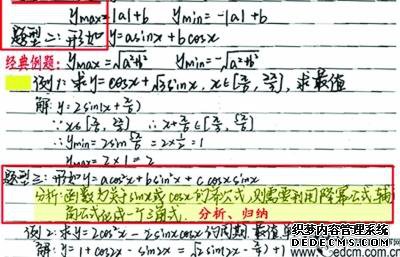 ymax=|a|+b ymin=-|a|+b
题型二:形如y=asinx+bcosx
经典例题:ymax=√a²+b² ymin=-√a²+b²
例1:求y=cosx+√3sinx,x∈[π/6, 2π/3],求最值
解:y=2sin(x+π/6)
∵x∈[π/6, 2π/3] ∴x+π/6∈[π/3, 5π/6]
∴ymin=2sin5π/6=2×1/2=1
ymax=2×1=2
题型三:形如y=acos²x+bsin²x+c cosxsinx
分析:函数为关于sinx或cosx的齐次式,则需要利用降幂公式,辅助
角公式化成一个三角式. 分析、归纳
例2:求y=2cos²x-2sinxcosx的周期,最值,单
解:y=1+cos2x-sin2x=
+1
织梦内容管理系统
edcm.com